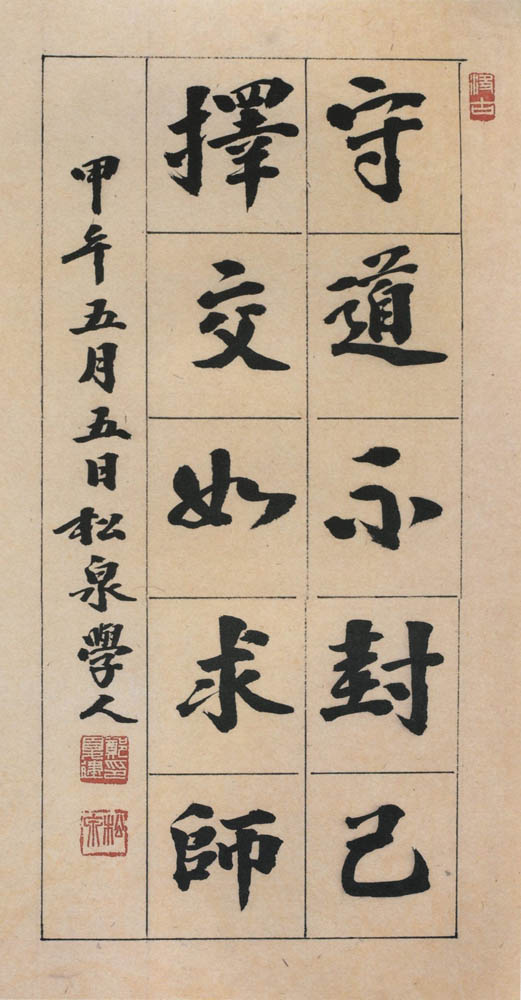 守道不封己
擇交如求師
甲午五月五日松泉學人
松泉